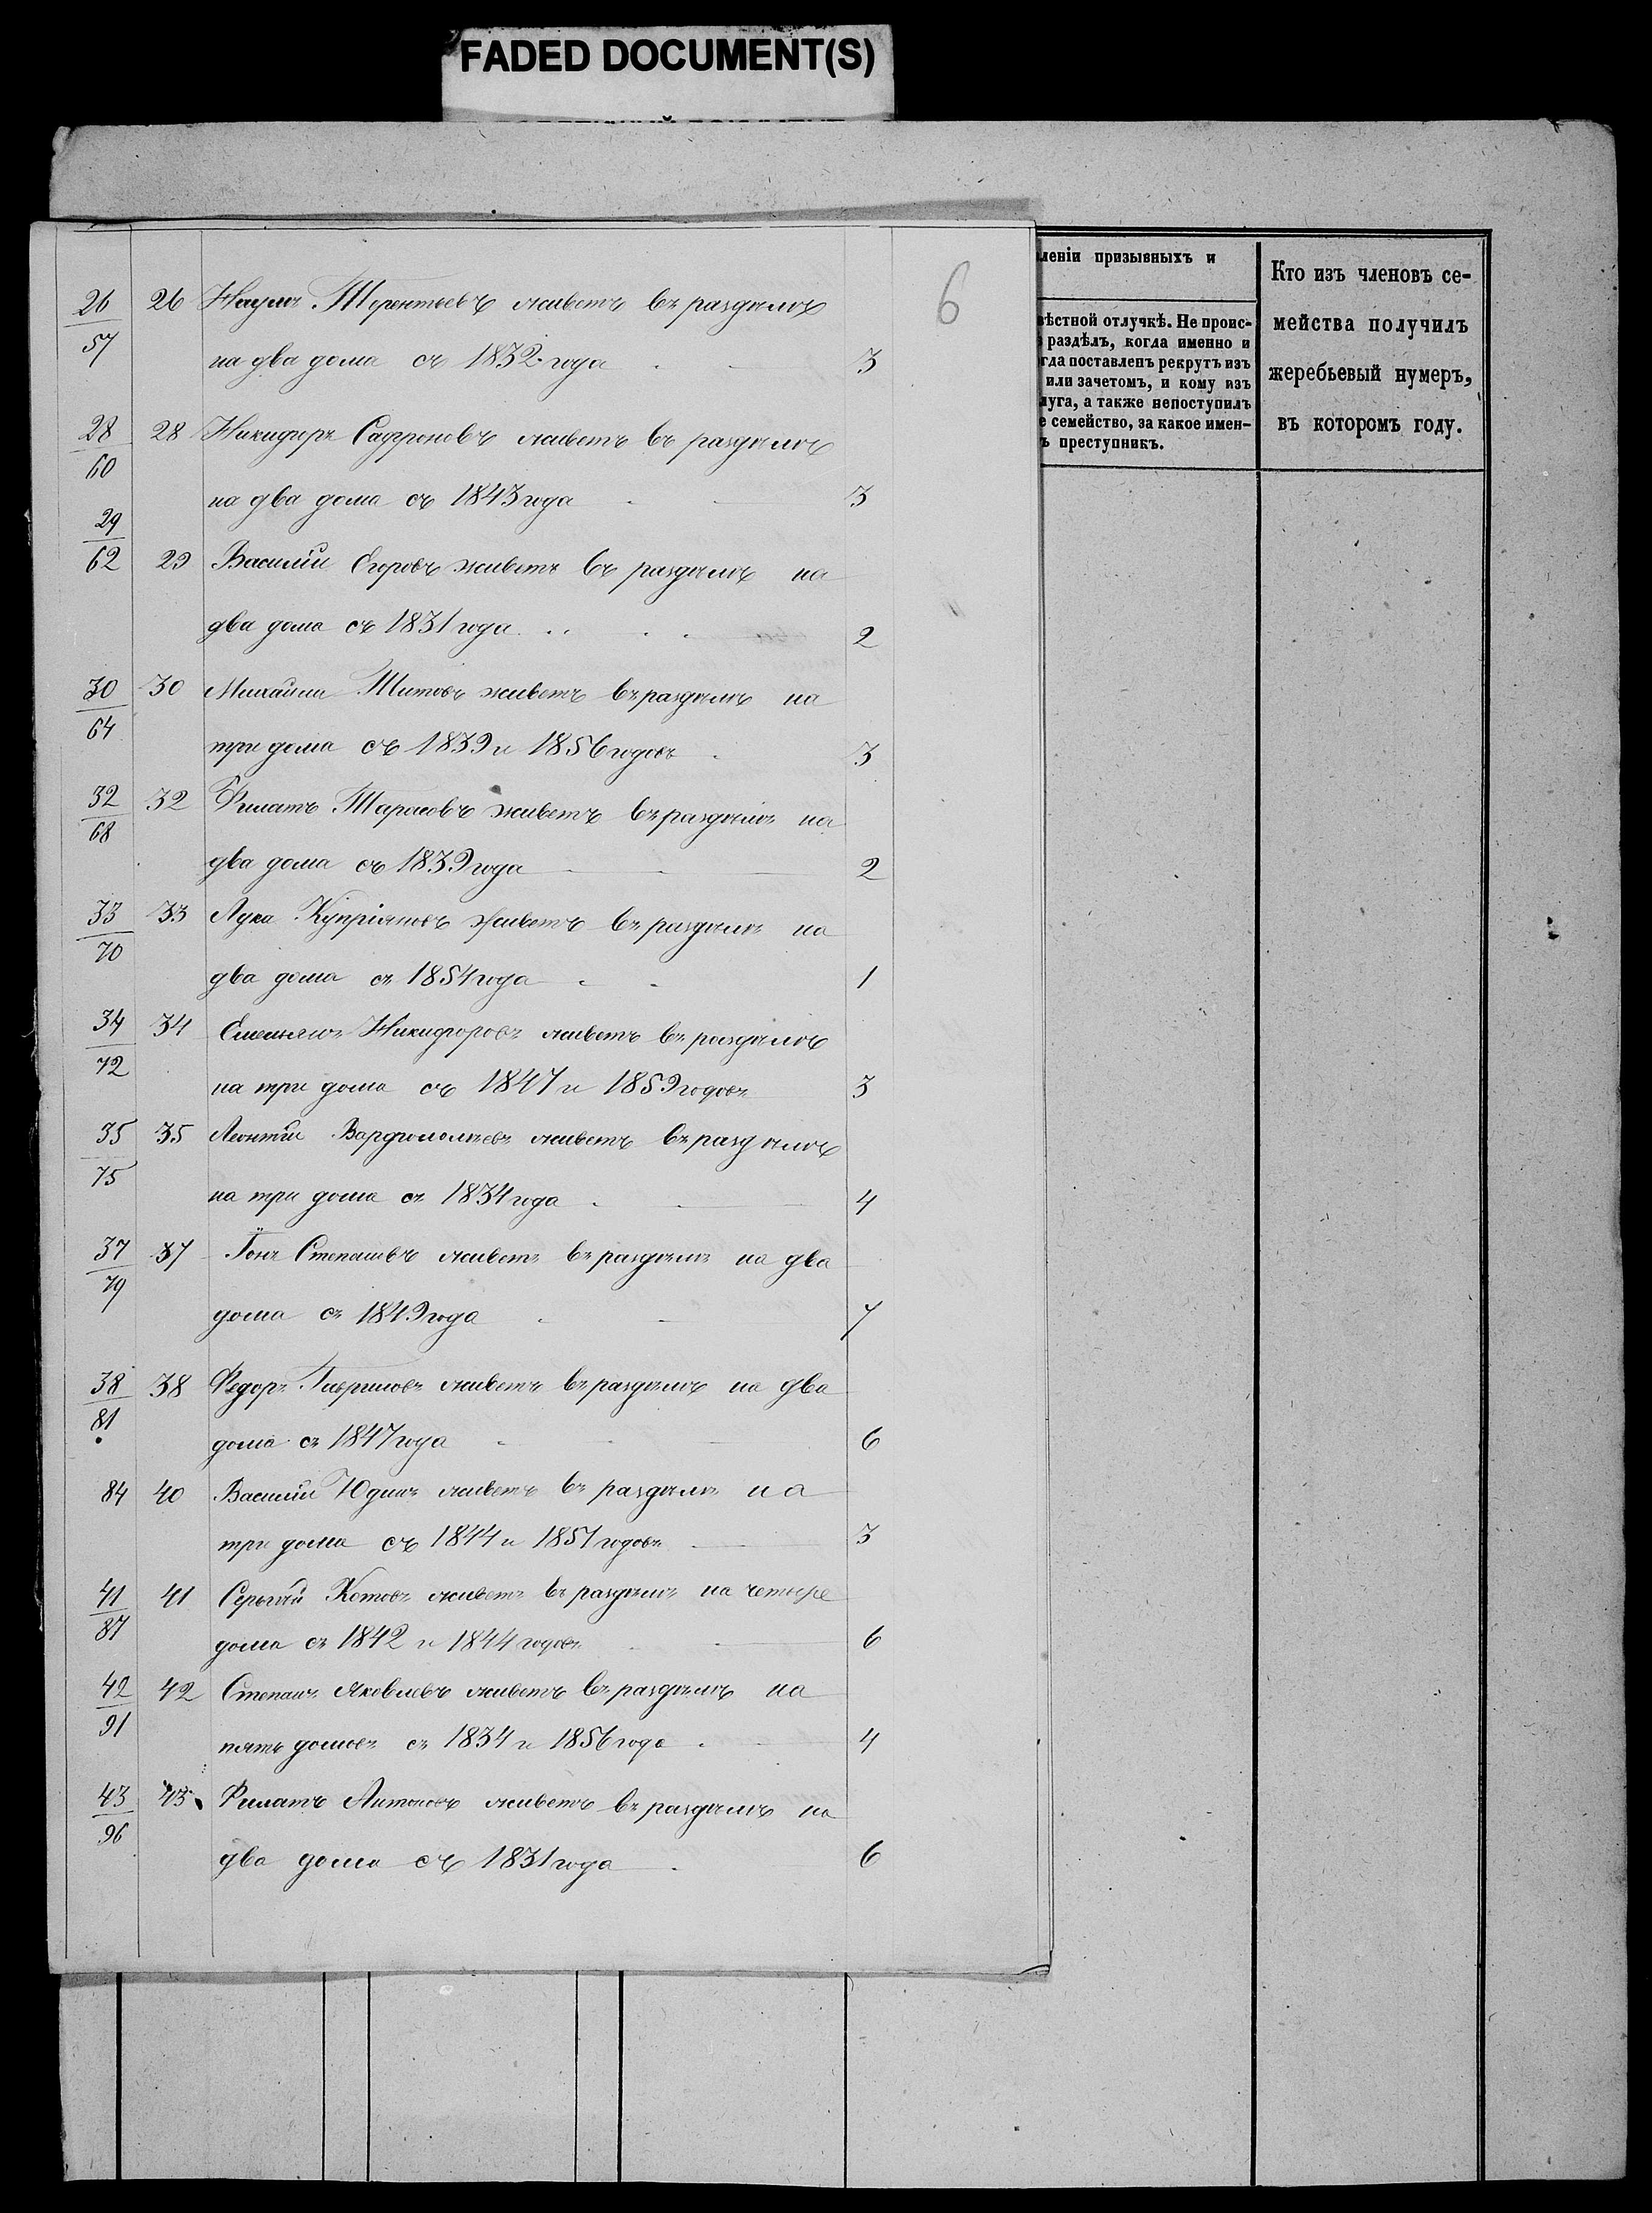 FADED DOCUMENT(S)
6
26/57 26 Наумъ Терентьевъ живетъ въ раздѣлѣ
на два дома съ 1832 года 3
28/60 28 Никифоръ Сафроновъ живетъ въ раздѣлѣ
на два дома съ 1843 года 3
29/62 29 Василій Егоровъ живетъ въ раздѣлѣ на
два дома съ 1831 года 2
30/64 30 Михайла Титовъ живетъ въ раздѣлѣ на
три дома съ 1839 и 1856 годовъ 3
32/68 32 Филатъ Тарасовъ живетъ въ раздѣлѣ на
два дома съ 1839 года 2
33/70 33 Лука Купріяновъ живетъ въ раздѣлѣ на
два дома съ 1854 года 1
34/72 34 Емельянъ Никифоровъ живетъ въ раздѣлѣ
на три дома съ 1847 и 1859 годовъ 3
35/75 35 Леонтій Варфоломѣевъ живетъ въ раздѣлѣ
на три дома съ 1834 года 4
37/79 37 Іонъ Степановъ живетъ въ раздѣлѣ на два
дома съ 1849 года 7
38/81 38 Федоръ живетъ въ раздѣлѣ на два
дома съ 1847 года 6
84 40 Василій Юдинъ живетъ въ раздѣлѣ на
три дома съ 1844 и 1851 годовъ 3
41/87 41 Сергѣй Котовъ живетъ въ раздѣлѣ на четыре
дома съ 1842 и 1844 годовъ 6
42/91 42 Степанъ Яковлевъ живетъ въ раздѣлѣ на
пять домовъ съ 1834 и 1856 года 4
43/96 43 Филатъ Антоновъ живетъ въ раздѣлѣ на
два дома съ 1831 года 6
леніи призывныхъ и
вѣстной отлучкѣ. Не проис-
раздѣлъ, когда именно и
гда поставленъ рекрутъ изъ
или зачетомъ, и кому изъ
луга, а также непоступилъ
е семейство, за какое имен-
ъ преступникъ.
Кто изъ членовъ се-
мейства получилъ
жеребьевый нумеръ,
въ которомъ году.